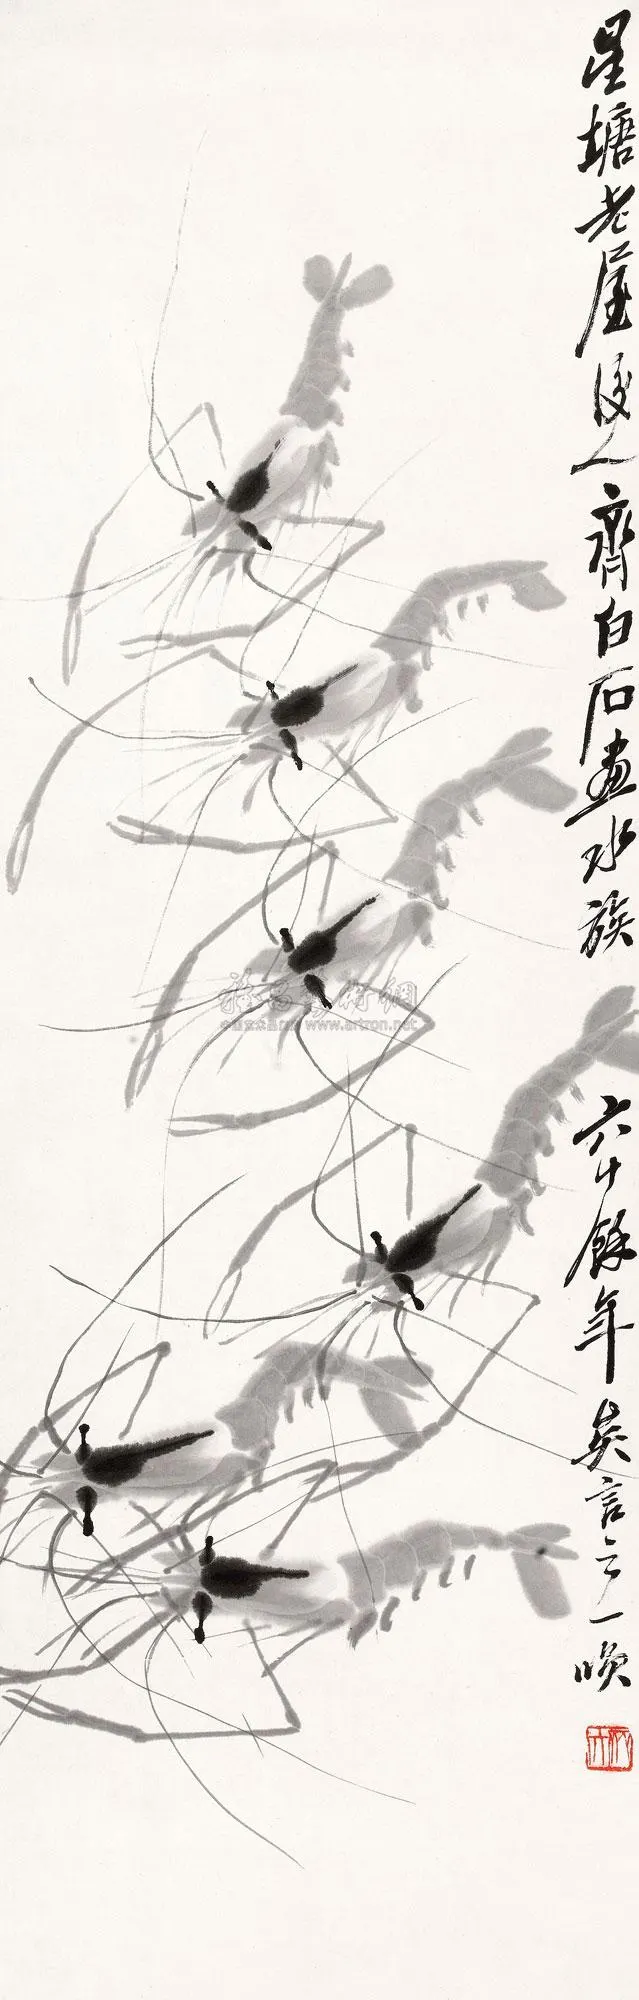 星塘老屋後人齊白石畫水族 六十餘年矣言之一嘆
雅昌藝術網
www.artron.net